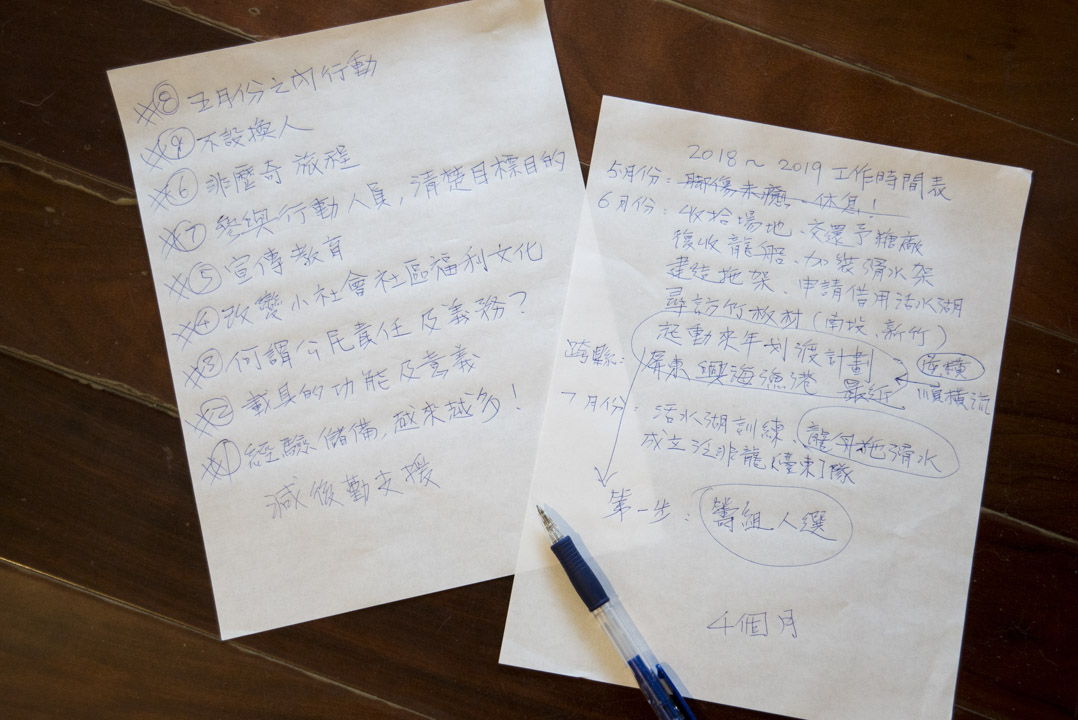 ※⑧ 五月份之內行動
※⑨ 不設換人
※⑥ 非歷奇旅程
※⑦ 參與行動人員，清楚目標目的
※⑤ 宣傳教育
※④ 改變小社會社區福利文化
※③ 何謂公民責任及義務？
※② 載具的功能及意義
※① 經驗儲備，越來越多！
減後勤支援
2018～2019 工作時間表
5月份：腳傷未癒、休息！
6月份：收拾場地、交還予糖廠
復收龍船、加裝滑水架
建造拖架、申請借用活水湖
尋訪竹板材（南投、新竹）
起動來年划渡計劃
跨縣：屏東 興海漁港 最近
逆橫
順橫流
7月份：活水湖訓練、龍舟拖滑水
成立泛非龍【臺東】隊
第一步：籌組人選
4個月